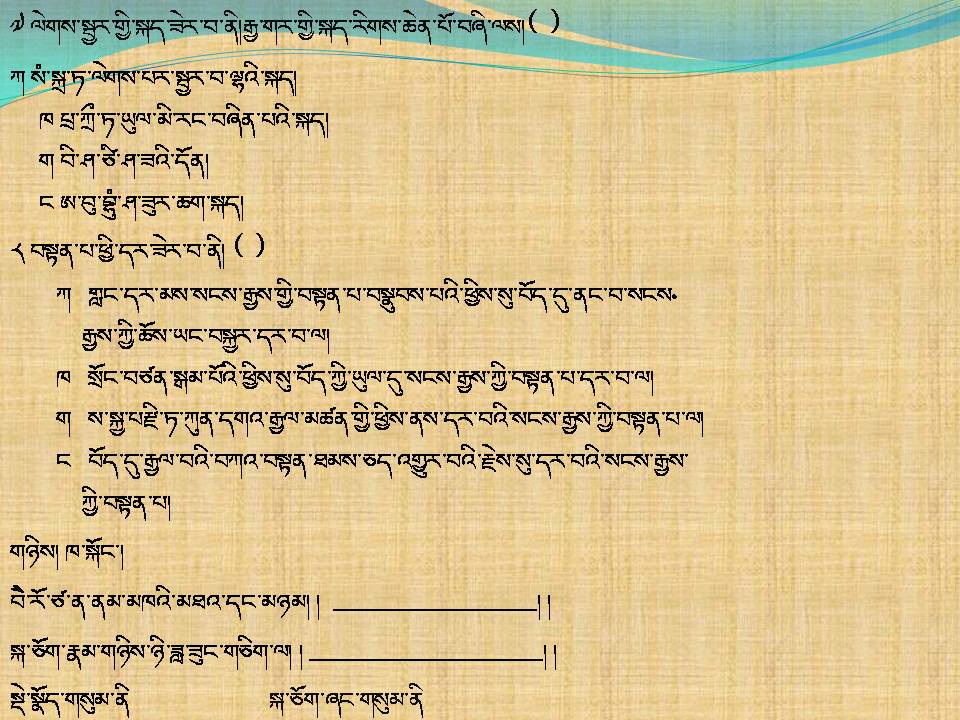 ༧ ལེགས་སྦྱར་གྱི་སྐད་ཟེར་བ་ནི།རྒྱ་གར་གྱི་སྐད་རིགས་ཆེན་པོ་བཞི་ལས།( )
ཀ སཾ་སྐྲ་ཏ་ལེགས་པར་སྦྱར་བ་ལྷའི་སྐད།
ཁ པྲ་ཀྲྀ་ཏ་ཡུལ་མི་རང་བཞིན་པའི་སྐད།
ག པི་ཤ་ཙི་ཤ་ཟའི་དོན།
ང ཨ་བུ་བྷྲཾ་ཤ་ཟུར་ཆག་སྐད།
༨ བསྟན་པ་ཕྱི་དར་ཟེར་བ་ནི། ( )
ཀ གླང་དར་མས་སངས་རྒྱས་ཀྱི་བསྟན་པ་བསྣུབས་པའི་ཕྱིས་སུ་བོད་དུ་ནང་བ་སངས་
རྒྱས་ཀྱི་ཆོས་ཡང་བསྐྱར་དར་བ་ལ།
ཁ སྲོང་བཙན་སྒམ་པོའི་ཕྱིས་སུ་བོད་ཀྱི་ཡུལ་དུ་སངས་རྒྱས་ཀྱི་བསྟན་པ་དར་བ་ལ།
ག ས་སྐྱ་པཎྜི་ཏ་ཀུན་དགའ་རྒྱལ་མཚན་གྱི་ཕྱིས་ནས་དར་བའི་སངས་རྒྱས་ཀྱི་བསྟན་པ་ལ།
ང བོད་དུ་རྒྱལ་བའི་བཀའ་བསྟན་ཐམས་ཅད་འགྱུར་བའི་རྗེས་སུ་དར་བའི་སངས་རྒྱས་
ཀྱི་བསྟན་པ།
གཉིས། ཁ་སྐོང་།
བཻ་རོ་ཙ་ན་ནམ་མཁའི་མཐའ་དང་མཉམ། ། ____________________། །
སྐ་ཅོག་རྣམ་གཉིས་ཉི་ཟླ་ཟུང་གཅིག་ལ། ། ____________________། །
སྡེ་སྣོད་གསུམ་ནི སྐ་ཅོག་ཞང་གསུམ་ནི